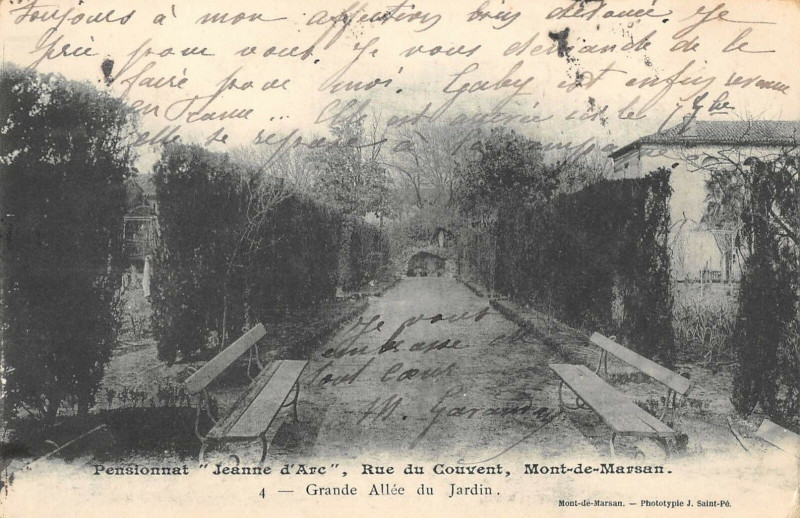 Toujours à mon affection bien
Je
prie pour vous. Je vous demande de le
faire pour moi. Gaby est enfin revenue
en France. Elle est arrivée sur le
elle se repose à la campagne
Je vous
embrasse de
tout cœur
M.
Pensionnat "Jeanne d'Arc", Rue du Couvent, Mont-de-Marsan.
4 — Grande Allée du Jardin.
Mont-de-Marsan. — Phototypie J. Saint-Pé.